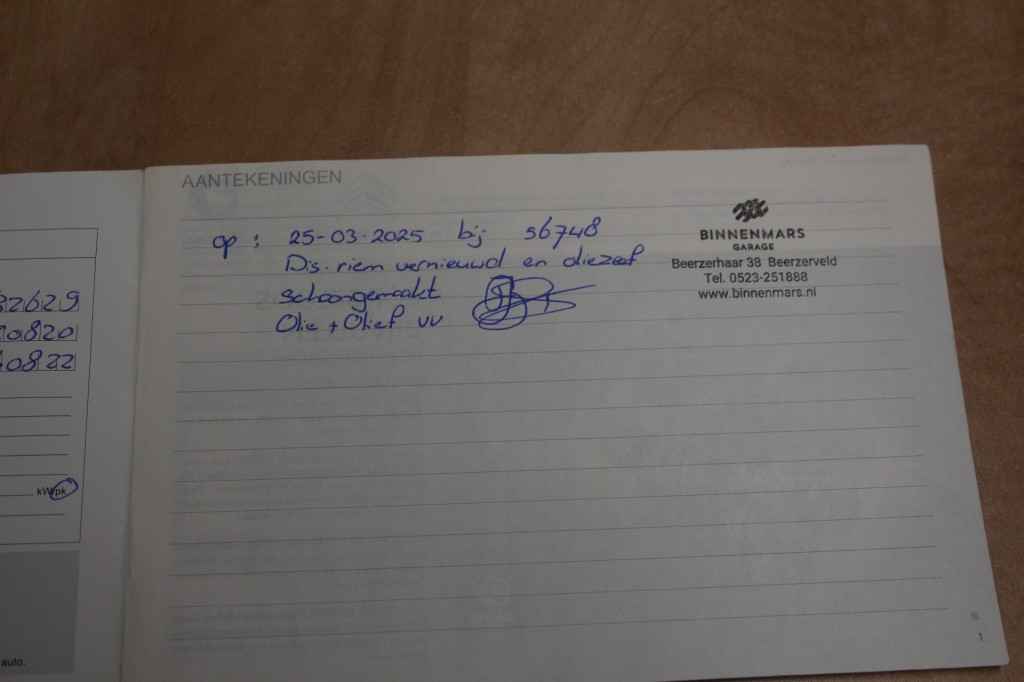 AANTEKENINGEN
op : 25-03-2025 bij 56748
Dis. riem vernieuwd en oliezeef
schoongemaakt
Olie + Olief vv
BINNENMARS
GARAGE
Beerzerhaar 38 Beerzerveld
Tel. 0523-251888
www.binnenmars.nl
82629
10820
40822
kW/pk
auto.
1